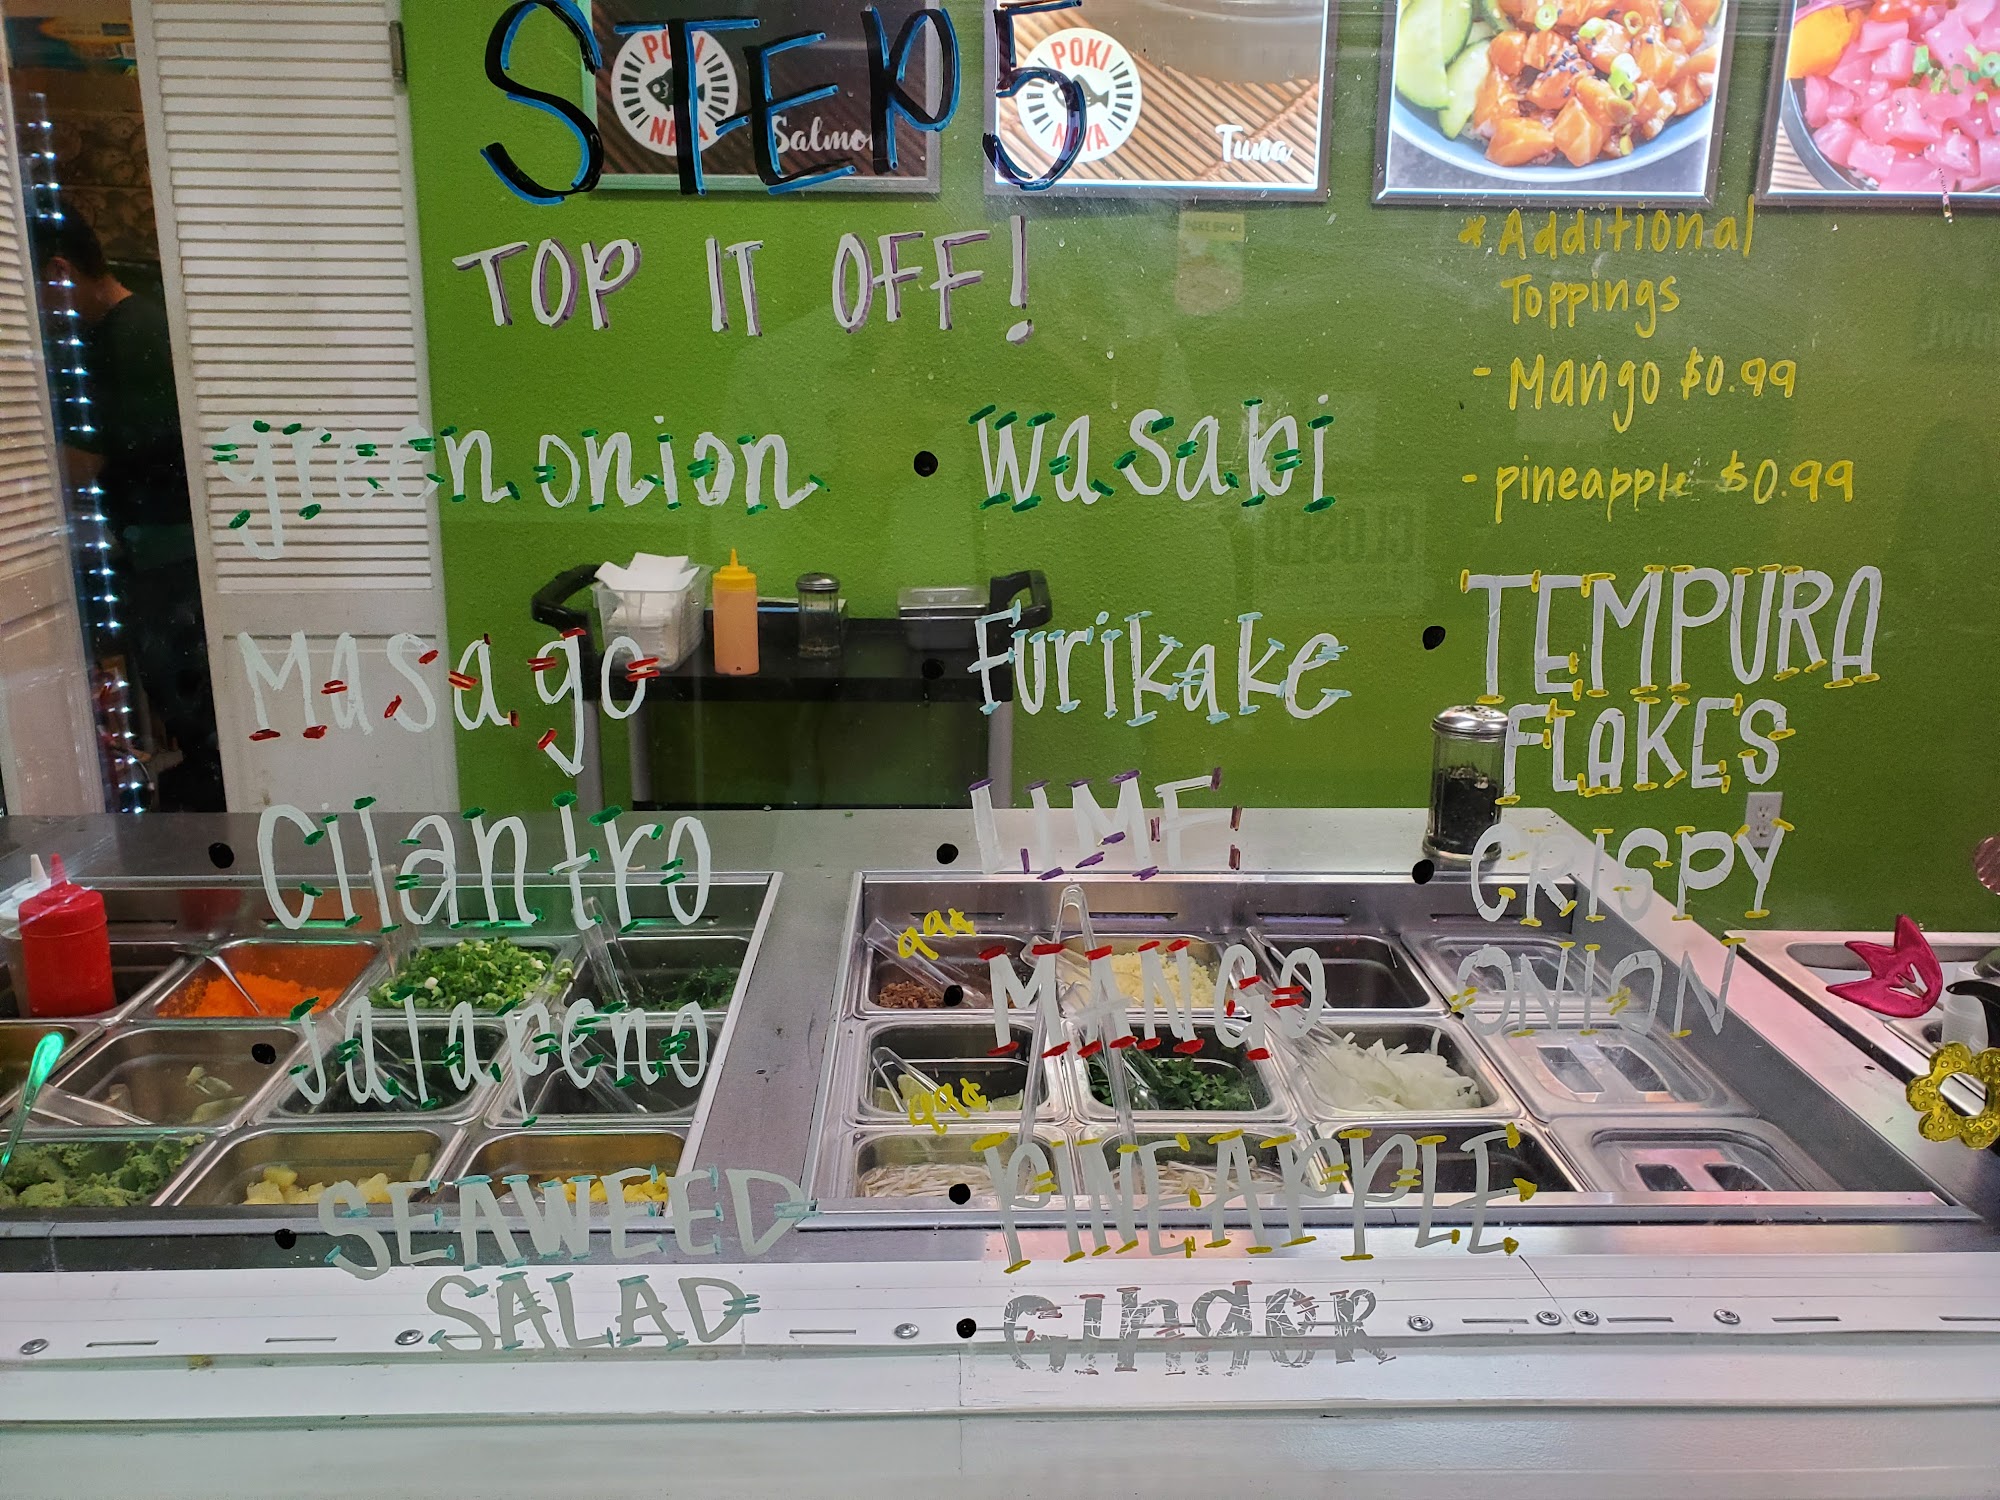 STEP 5
POKI
NAYA
Salmon
POKI
NAYA
Tuna
TOP IT OFF!
green onion
Masago
• Cilantro
• Jalapeno
• SEAWEED
SALAD
• Wasabi
• Furikake
• LIME
99¢
• MANGO
99¢
• PINEAPPLE
• GINGER
* Additional
Toppings
- Mango $0.99
- pineapple $0.99
• TEMPURA
FLAKES
• CRISPY
ONION
CLOSED